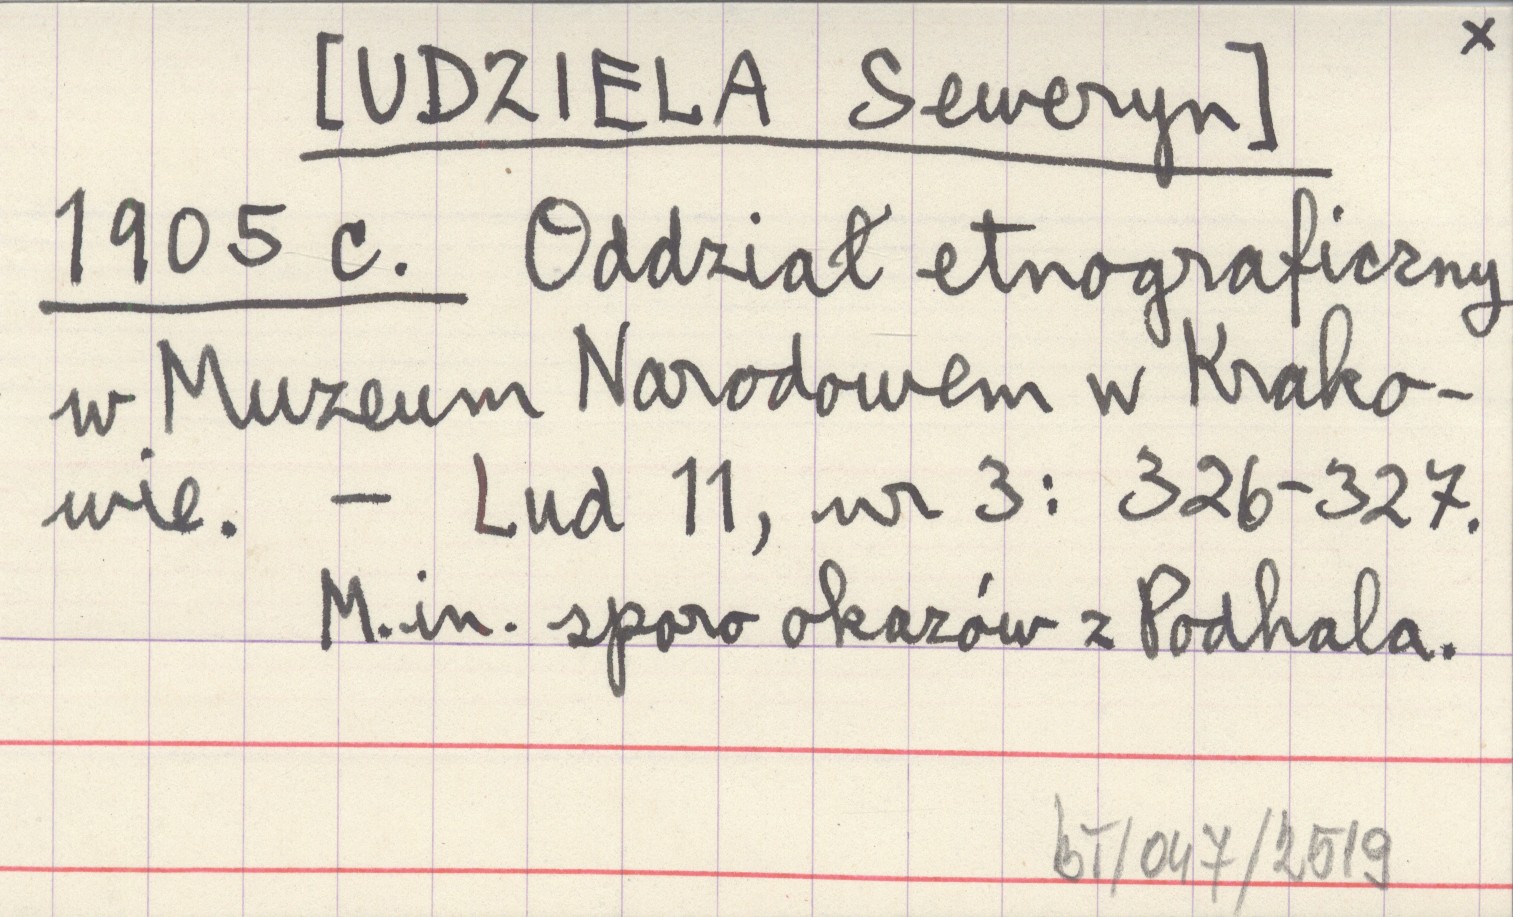 x
[UDZIELA Seweryn]
1905 c. Oddział etnograficzny
w Muzeum Narodowem w Krako-
wie. – Lud 11, nr 3: 326-327.
M.in. sporo okazów z Podhala.
bT/047/2519